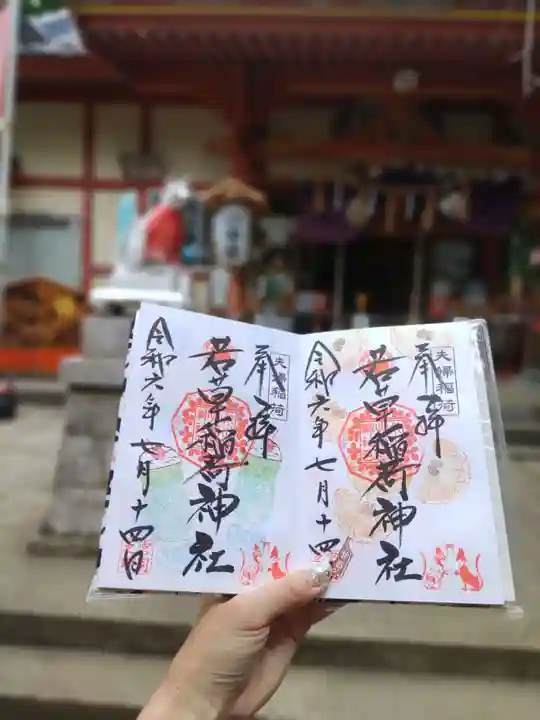 奉拝
夫婦稲荷
若草稲荷神社
令和六年七月十四日
奉拝
夫婦稲荷
若草稲荷神社
令和六年七月十四